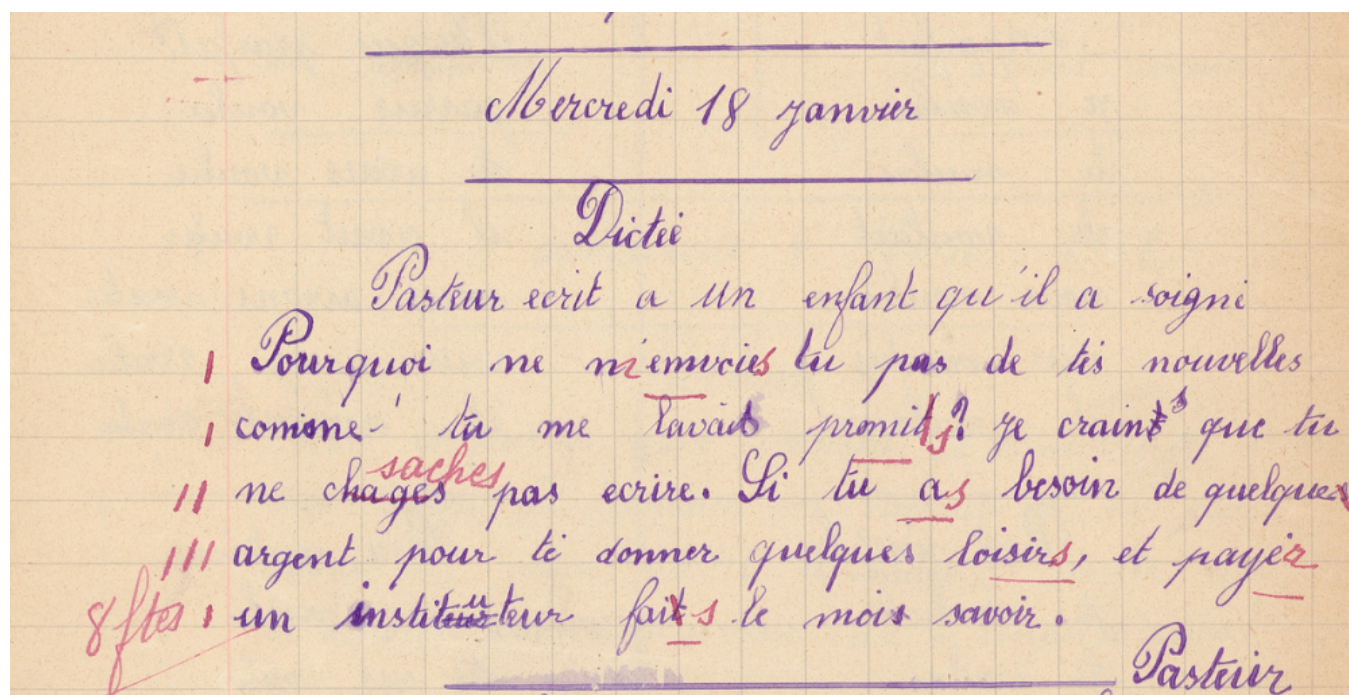 Mercredi 18 janvier
Dictée
Pasteur ecrit a un enfant qu'il a soigné
I Pourquoi ne m'envoies tu pas de tes nouvelles
I comme tu me l'avait promits? Je crains que tu
saches
II ne chages pas ecrire. Si tu as besoin de quelques
III argent pour te donner quelques loisirs, et payér
8 ftes I un instituteur faits le mois savoir.
Pasteur